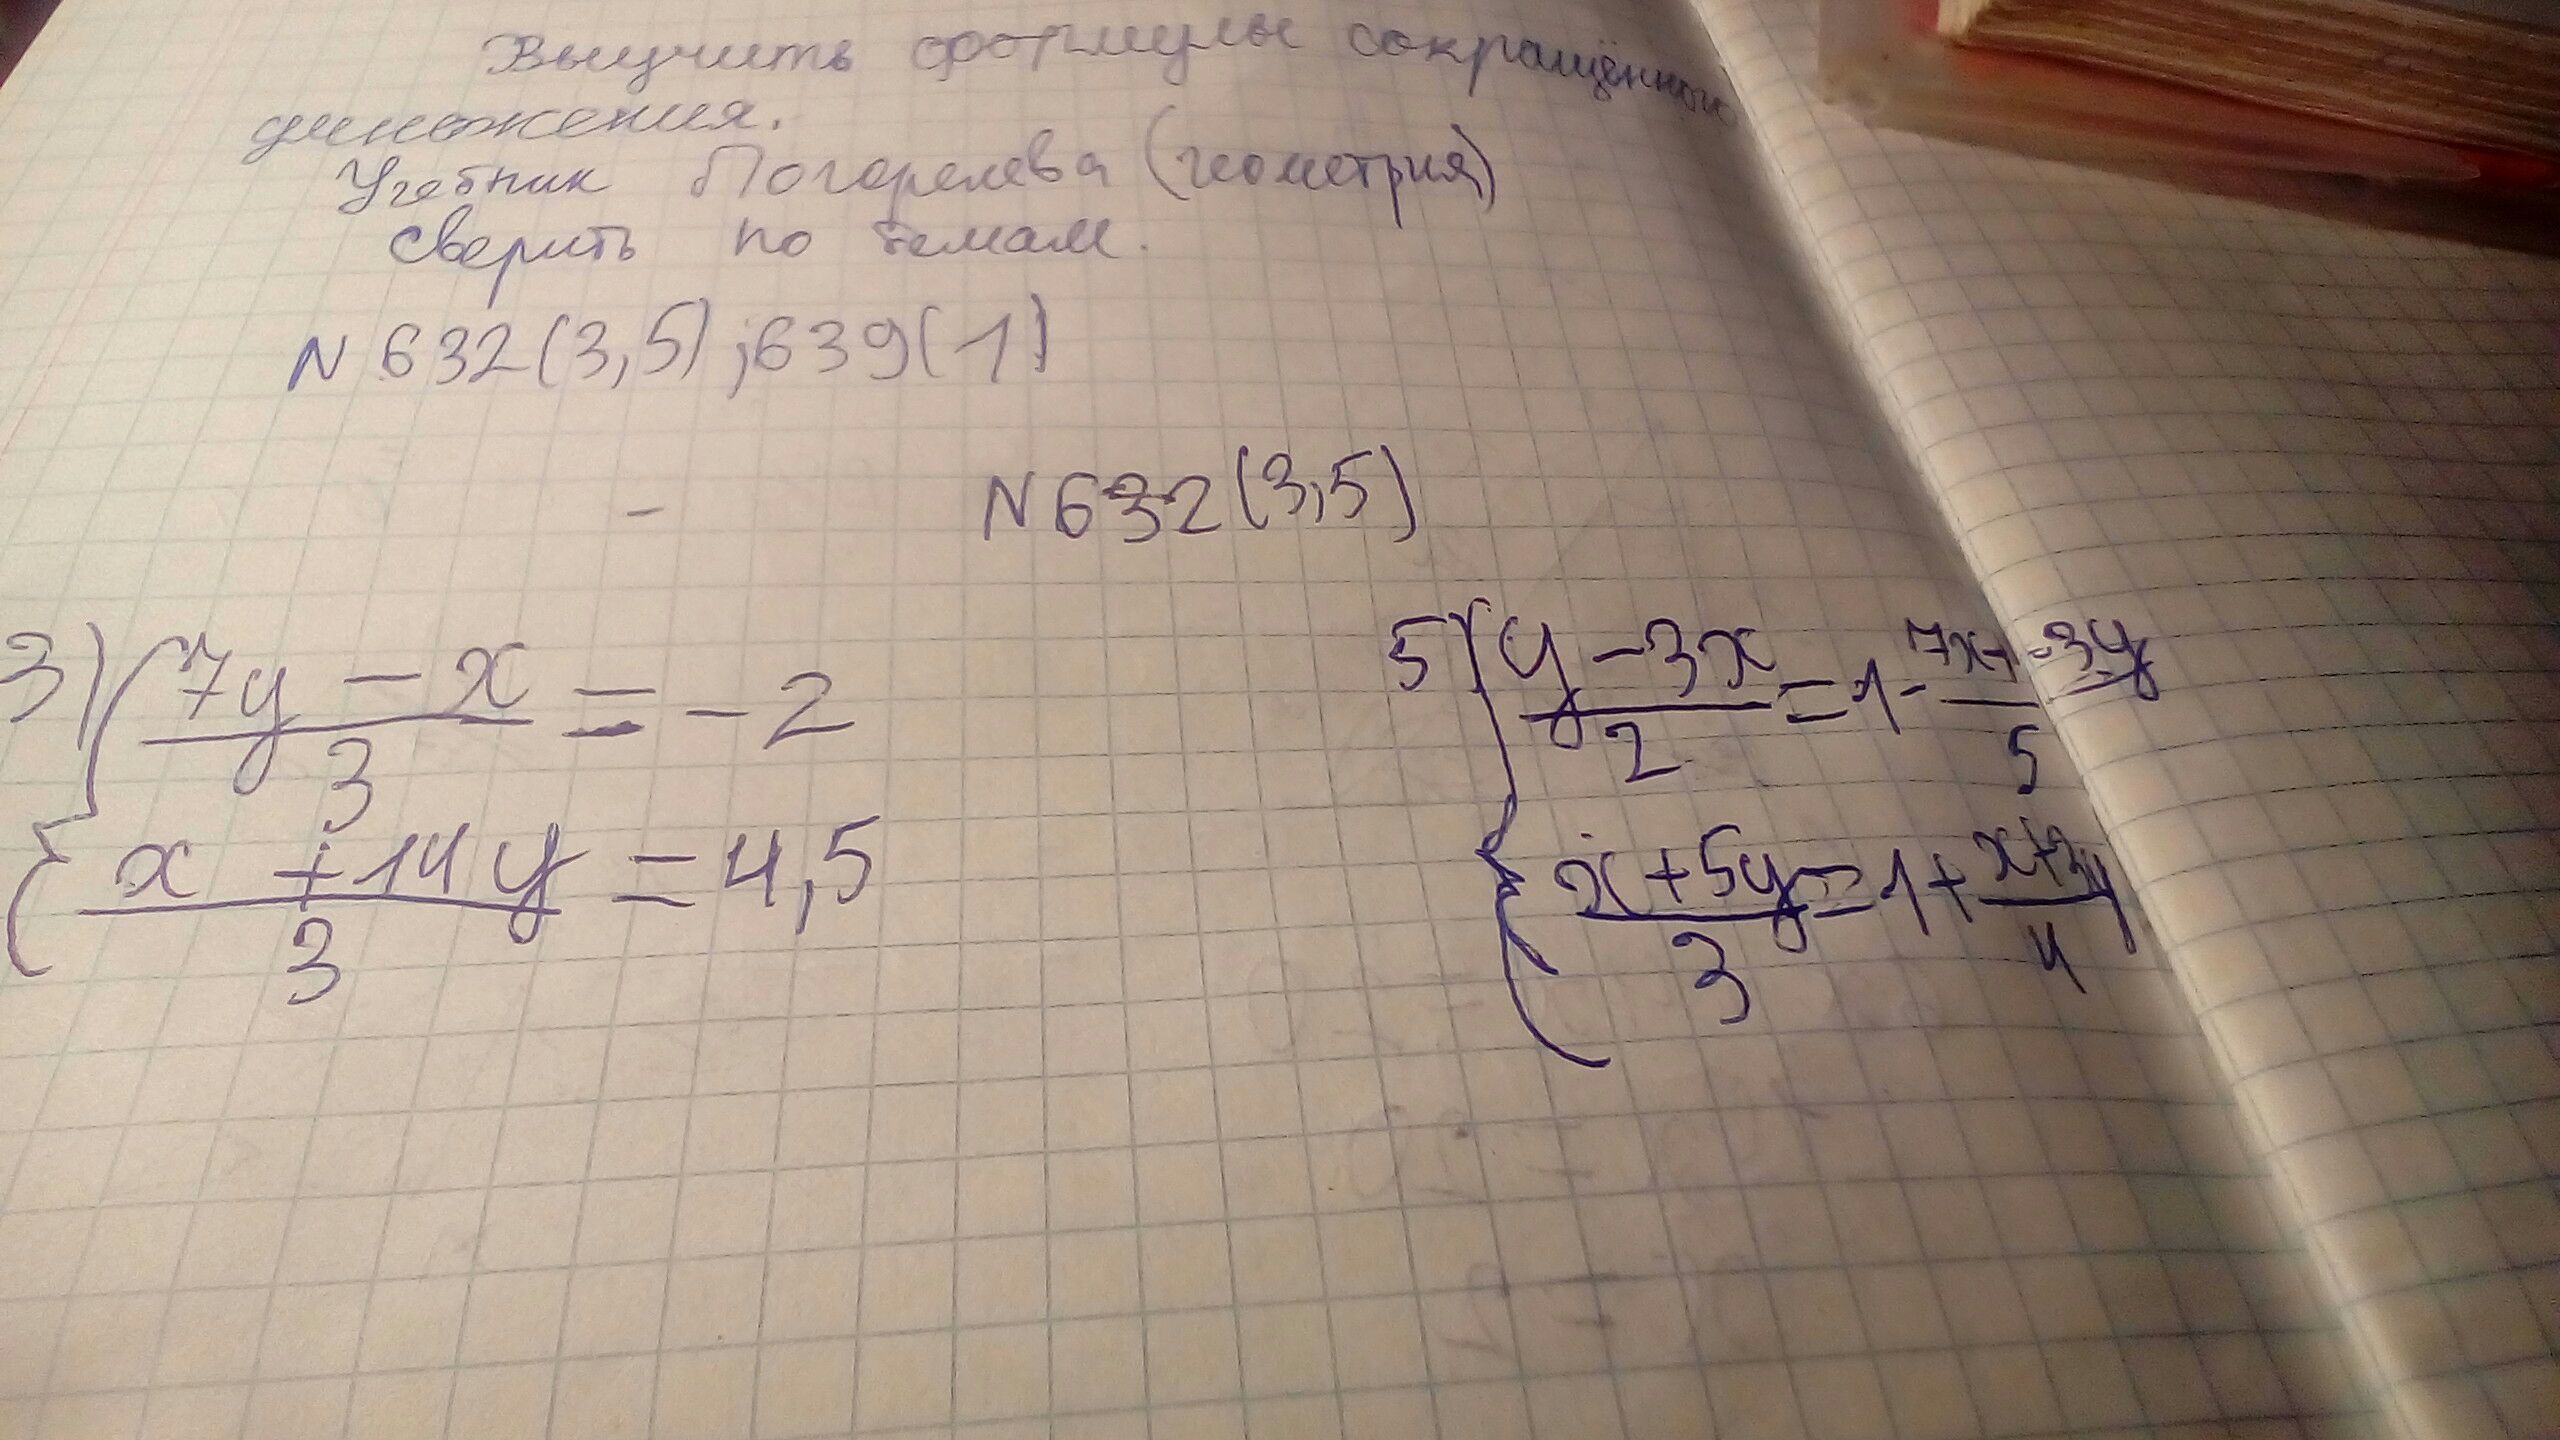 Выучить формулы сокращённого
умножения.
Учебник Погорелева (геометрия)
сверить по темам.
N 632(3,5); 639(1)
N 632(3,5)
3) { (7y - x)/3 = -2
{ (x + 14y)/3 = 4,5
5) { (y - 3x)/2 = 1 - (7x + - 3y)/5
{ (x + 5y)/3 = 1 + (x + 3y)/4